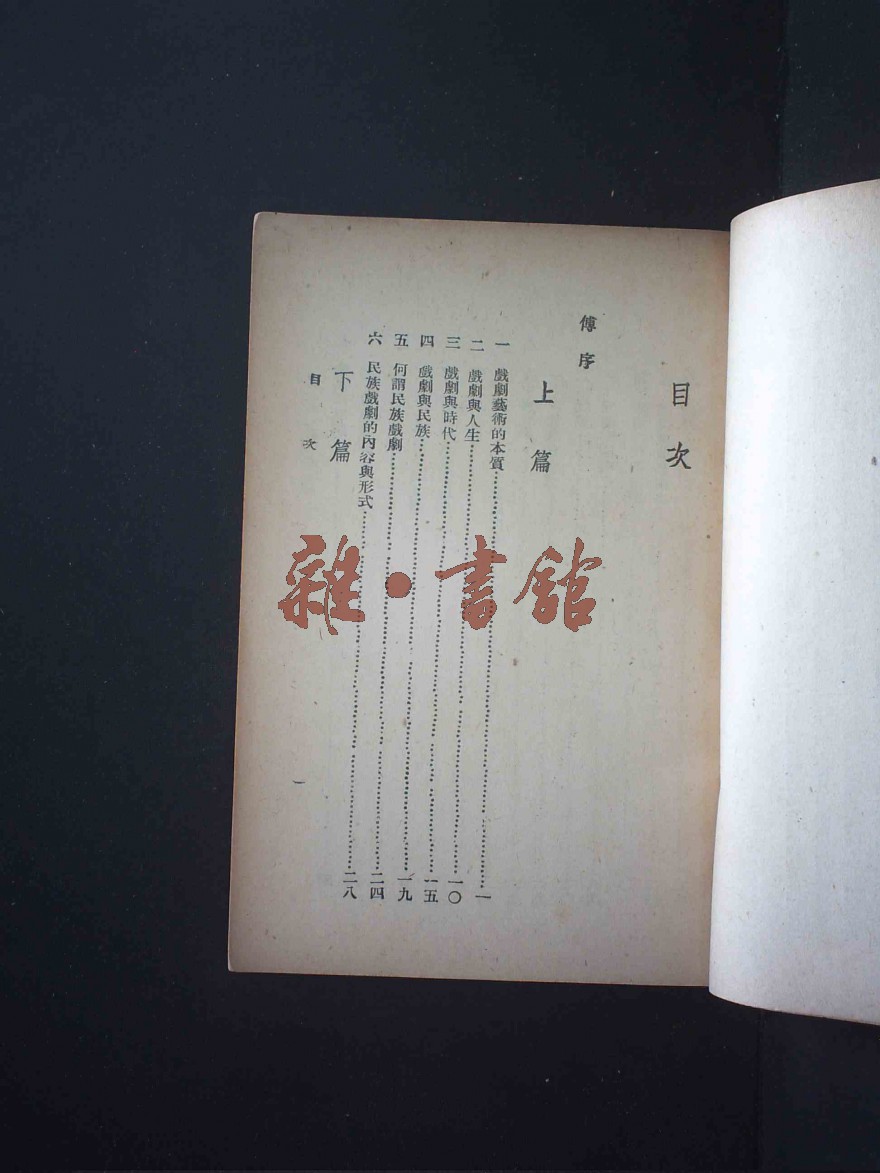 目次
傅序
上篇
一 戲劇藝術的本質……一
二 戲劇與人生……一〇
三 戲劇與時代……一五
四 戲劇與民族……一九
五 何謂民族戲劇……二四
六 民族戲劇的內容與形式……二八
下篇
目次
一
雜·書館